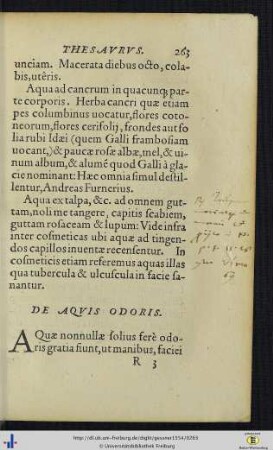 THESAVRVS. 263
unciam. Macerata diebus octo, cola-
bis, utêris.
Aqua ad cancrum in quacunq; par-
te corporis. Herba cancri quæ etiam
pes columbinus uocatur, flores coto-
neorum, flores cerifolij, frondes aut fo
lia rubi Idæi (quem Galli framboſiam
uocant,) & paucæ rosæ albæ, mel, & ui-
num album, & alumē quod Galli à gla-
cie nominant: Hæc omnia simul destil-
lentur, Andreas Furnerius.
Aqua ex talpa, &c. ad omnem gut-
tam, noli me tangere, capitis scabiem,
guttam rosaceam & lupum: Vide infra
inter cosmeticas ubi aquæ ad tingen-
dos capillos inuentæ recensentur. In
cosmeticis etiam referemus aquas illas
qua tubercula & ulcuscula in facie sa-
nantur.
DE AQVIS ODORIS.
AQuæ nonnullæ solius ferè odo-
ris gratia fiunt, ut manibus, faciei
R 3
http://dl.ub.uni-freiburg.de/diglit/gessner1554/0293
© Universitätsbibliothek Freiburg